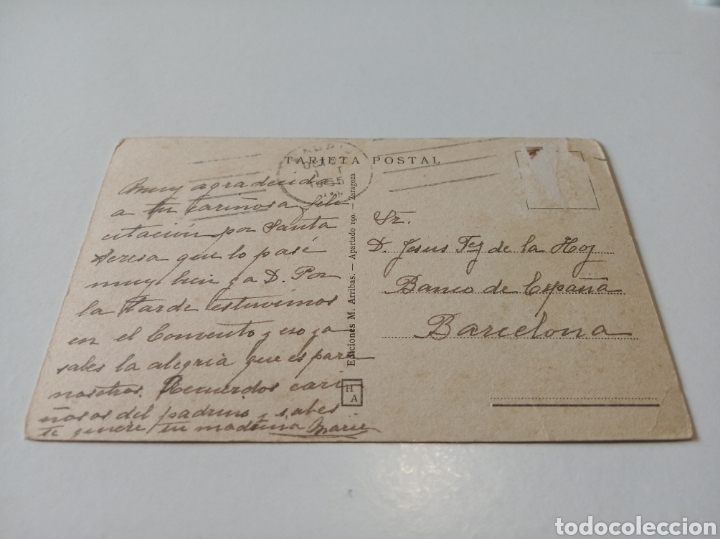 TARJETA POSTAL
Muy agradecida
a tu cariñosa feli
citación por Santa
Teresa que lo pasé
muy bien g. a D. Por
la tarde estuvimos
en el Convento y eso ya
sabes la alegria que es para
nosotros. Recuerdos cari
ñosos del padrino y sabes
te quiere tu madrina
Ediciones M. Arribas. — Apartado 190. — Zaragoza
H
A
Sr.
D. Jesus Fez de la Hoz
Banco de España
Barcelona
todocoleccion